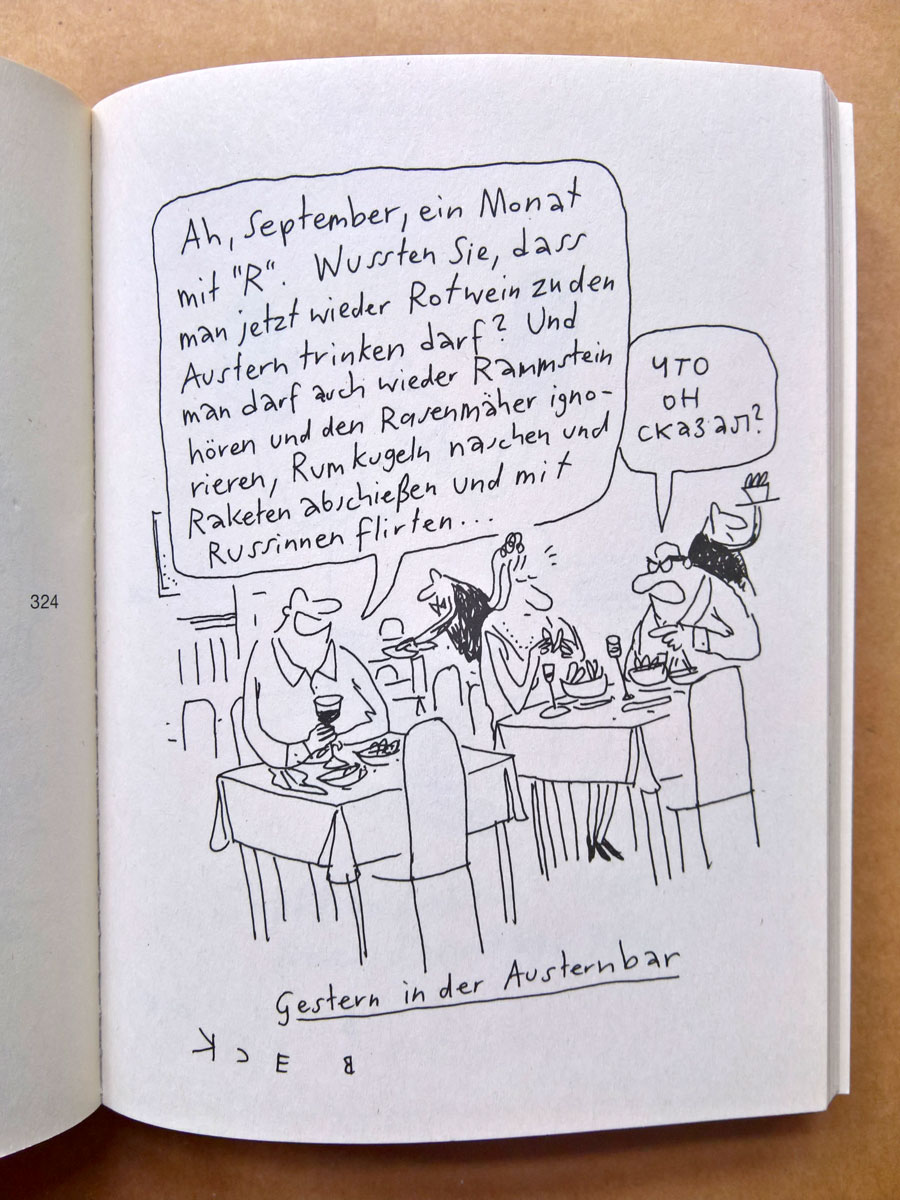 324
Ah, September, ein Monat
mit "R". Wussten Sie, dass
man jetzt wieder Rotwein zu den
Austern trinken darf? Und
man darf auch wieder Rammstein
hören und den Rasenmäher igno-
rieren, Rumkugeln naschen und
Raketen abschießen und mit
Russinnen flirten...
ЧТО
ОН
СКАЗАЛ?
Gestern in der Austernbar
BECK